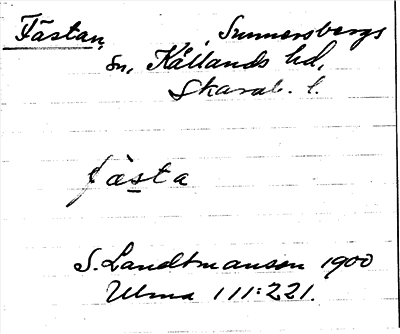 Fåstan, Sunnersbergs
sn, Kållands hd,
Skarab. l.
fåsta
S. Landtmanson 1900
Ulma 111:221.